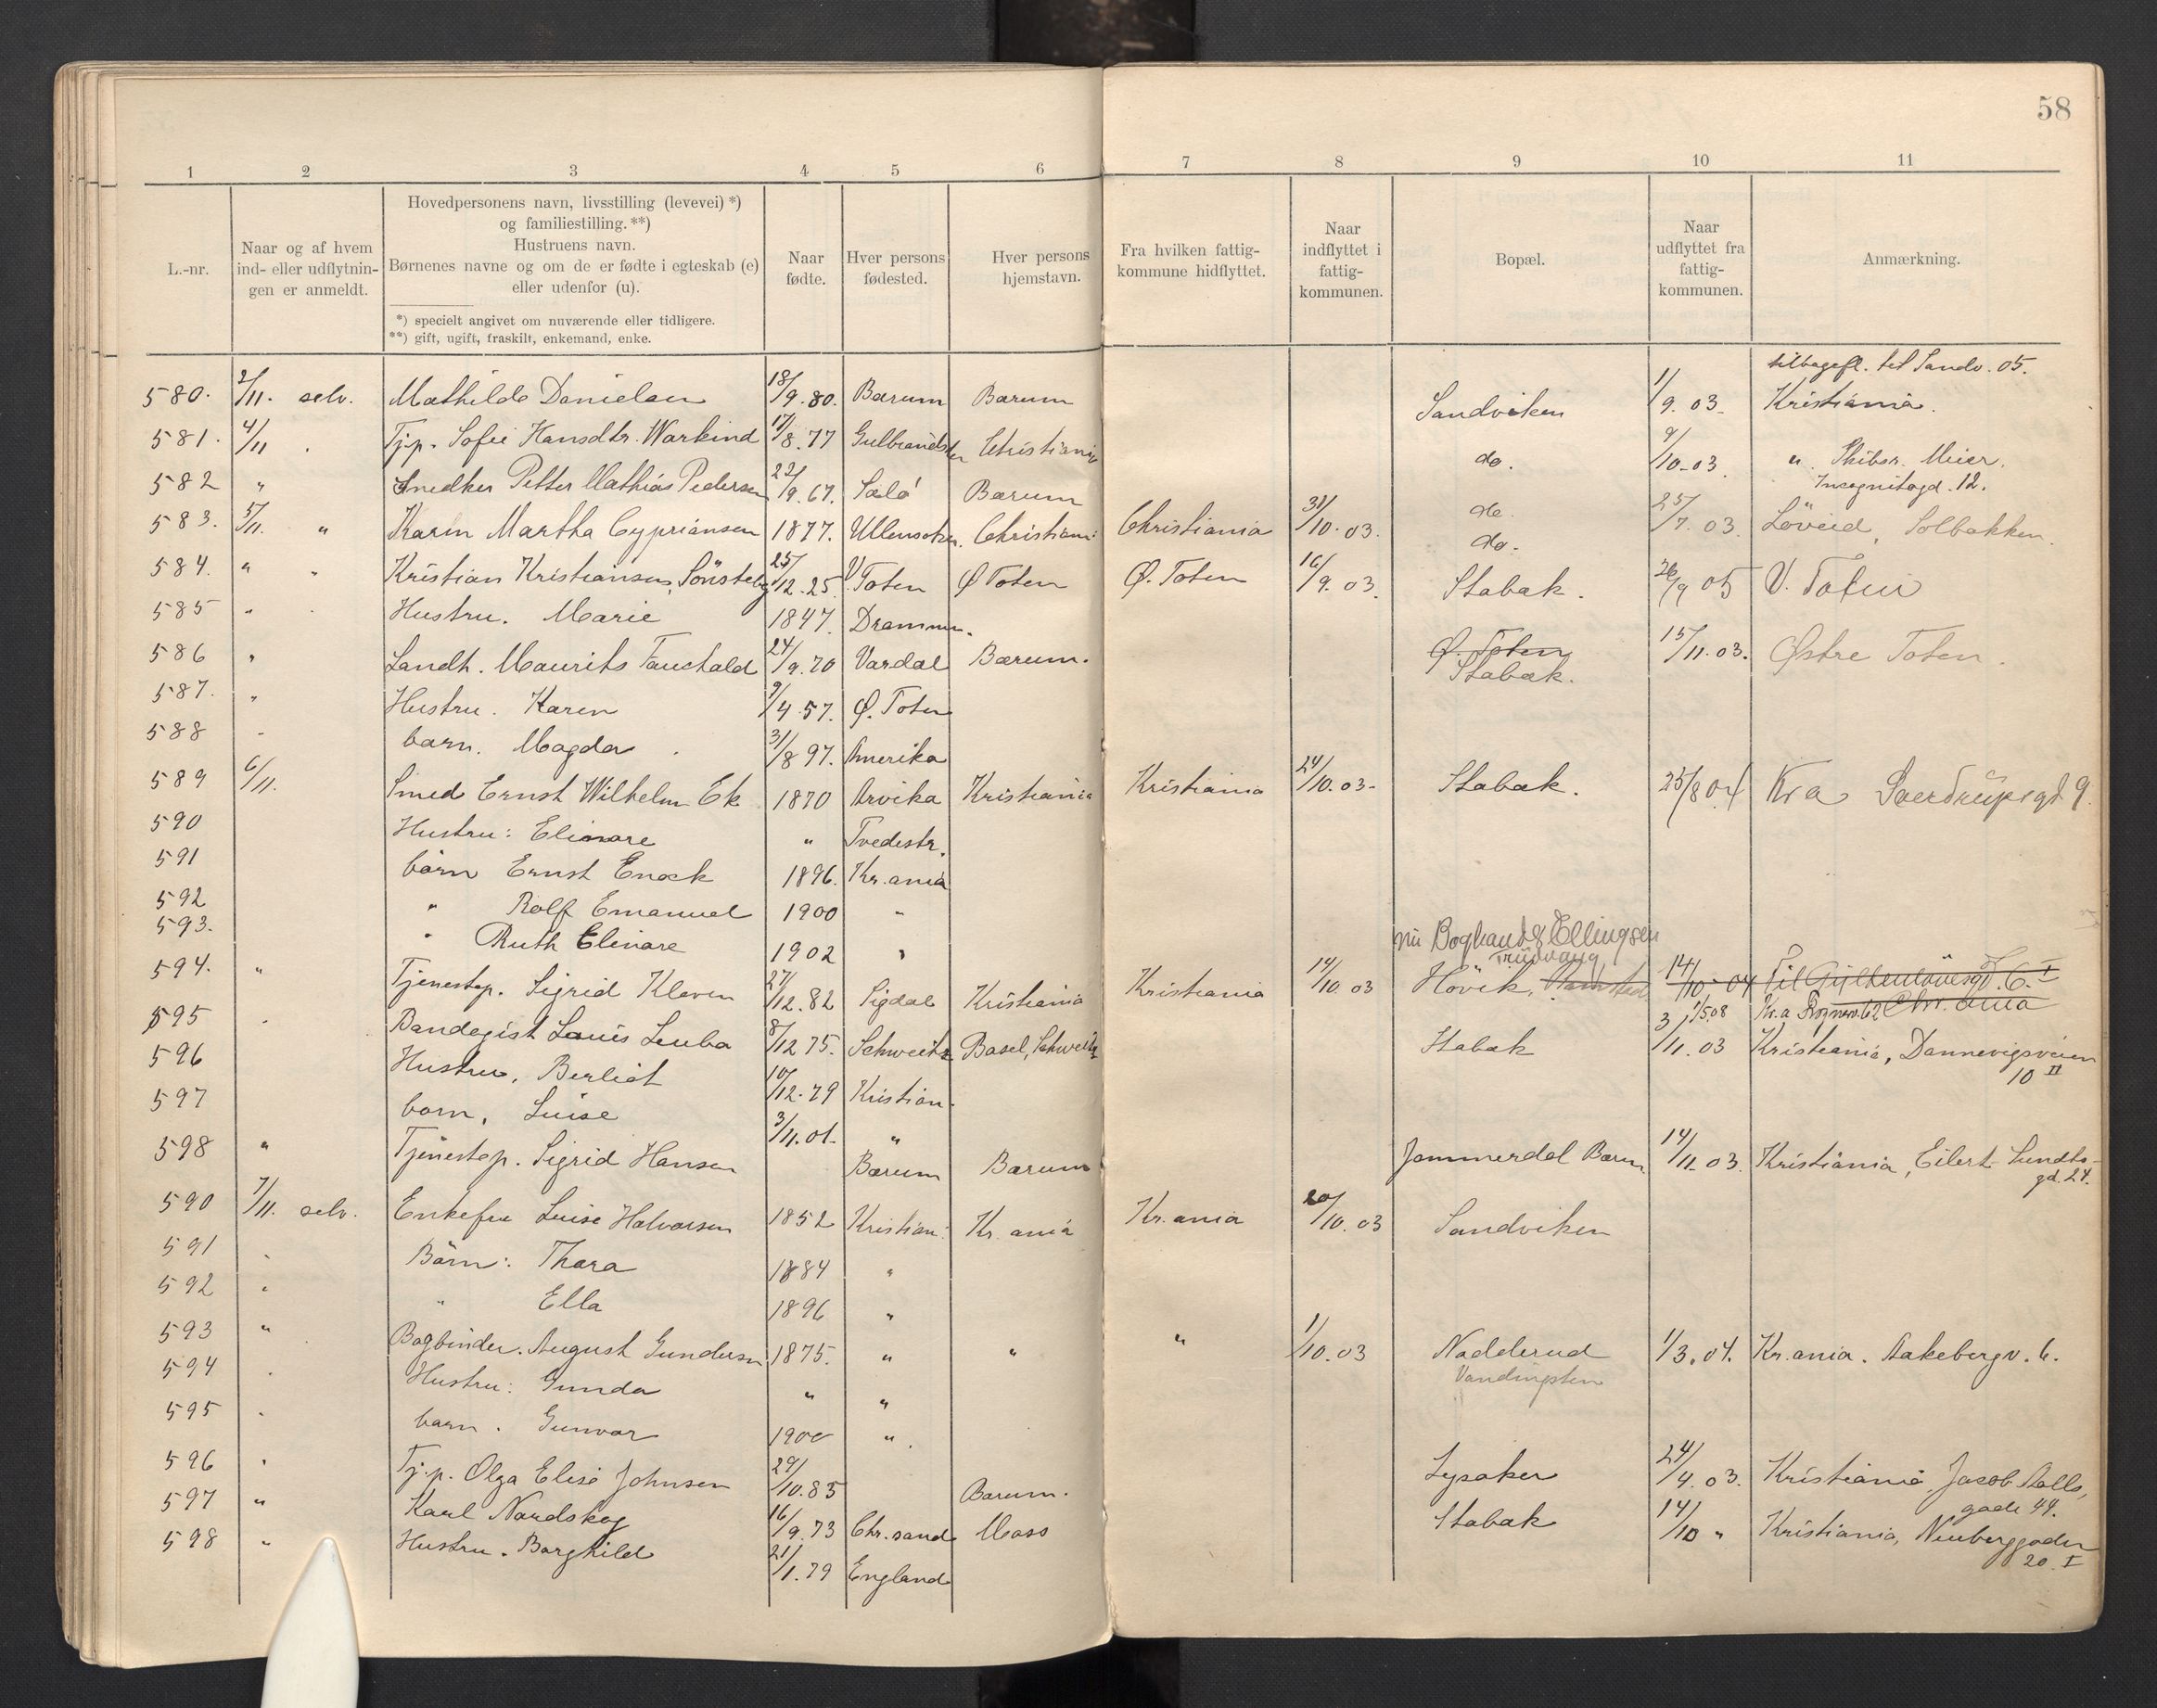 58
1 2 3 4 5 6 7 8 9 10 11
L.-nr.
Naar og af hvem ind- eller udflytnin- gen er anmeldt.
Hovedpersonens navn, livsstilling (levevei) *)
og familiestilling. **)
Hustruens navn.
Børnenes navne og om de er fødte i egteskab (e)
eller udenfor (u).
*) specielt angivet om nuværende eller tidligere.
**) gift, ugift, fraskilt, enkemand, enke.
Naar fødte.
Hver persons fødested.
Hver persons hjemstavn.
Fra hvilken fattig- kommune hidflyttet.
Naar indflyttet i fattig- kommunen.
Bopæl.
Naar udflyttet fra fattig- kommunen.
Anmærkning.
tilbagefl. til Sandv. 05.
580. 2/11. selv. Mathilde Danielsen 18/9.80. Bærum Bærum Sandviken 1/9.03. Kristiania.
581. 4/11 Tj.p. Sofie Hansdtr. Warkind 17/8.77 Christiania do. 9/10-03 " Meier.
Incognitogd. 12.
582 " Snedker Petter Mathias Pedersen 22/9.67. Bærum do. 25/7.03. Løveid, Solbakken.
583. 5/11. " Karen Martha Cypriansen 1877. Ullensaker. Christiani: Christiania 31/10.03. do.
584. " " Kristian Kristiansen, Sönsteby 25/12.25. V. Toten Ø Toten Ø. Toten 16/9.03. Stabæk. 26/9 05 V. Toten
585 " Hustru. Marie 1847. Drammen.
586 " Landh. Maurits Fauchald 24/9.70 Vardal Bærum. Ø. Toten 15/11.03. Østre Toten.
Stabæk.
587. " Hustru. Karen 9/4.57. Ø. Toten
588 " barn. Magda 31/8 97. Amerika
589 6/11. Smed Ernst Wilhelm Ek 1870 Arvika Kristiania Kristiania 24/10.03- Stabæk. 25/8 04 Kr a Sverdrupsgd 9.
590 Hustru: Elinore " Tvedestr.
591 börn Ernst Enock 1896. Kr.ania
592 " Rolf Emanuel 1900 "
593. " Ruth Elinore 1902 "
nu Boghandl Ellingsen
594. " Tjenestep. Sigrid Kleven 27/12.82 Sigdal Kristiania Kristiania 14/10.03 Hövik, 14/10-04 Til Gyldenløvesgd. 6. I
1/5.08 Kr.a Chr.ania
595 " Bandagist Louis Leuba 8/12 75. Schweitz Basel, Schweitz Stabæk 3/11.03 Kristiania, Dannevigsveien
10 II
596 Hustru, Berliot 10/12.79 Kristian.
597 barn, Luise 3/11.01. "
598 " Tjenestep. Sigrid Hansen Bærum Bærum Jammerdal Bærum 14/11.03. Kristiania, Eilert Sundts-
gd. 24.
590 7/11. selv. Enkefru Luise Halvorsen 1852 Kristian: Kr.ania Kr.ania 20/10.03 Sandviken
591 " Börn: Thora 1884 "
592 " " Ella 1896 "
593 " Bogbinder. August Gundersen 1875. " " " 1/10.03 Nadderud 1/3.04. Kr.ania. Aakebergv. 6.
594 " Hustru: Gunda " "
595 " barn. Gunvor 1900 "
596 " Tj.p. Olga Elise Johnsen 29/10.85 Bærum. Lysaker 24/4.03. Kristiania Jacob Aalls,
gade 44.
597 " Karl Nordskog 16/9.73 Chr.sand Moss Stabæk 14/10 " Kristiania, Neuberggaden
20. I
598 " Hustru. Borghild 21/1.79 England